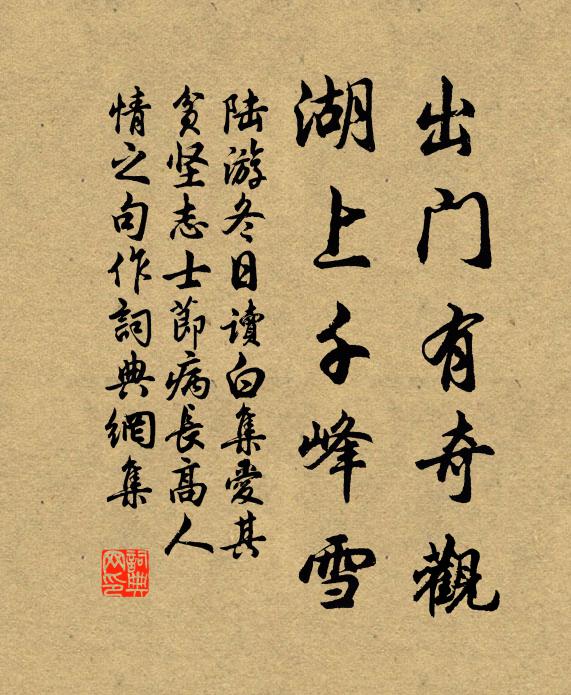 出门有奇觀
湖上千峰雪
陆游冬日读白集愛其
贫坚志士節病長高人
情之句作詞典網集
詞典网印